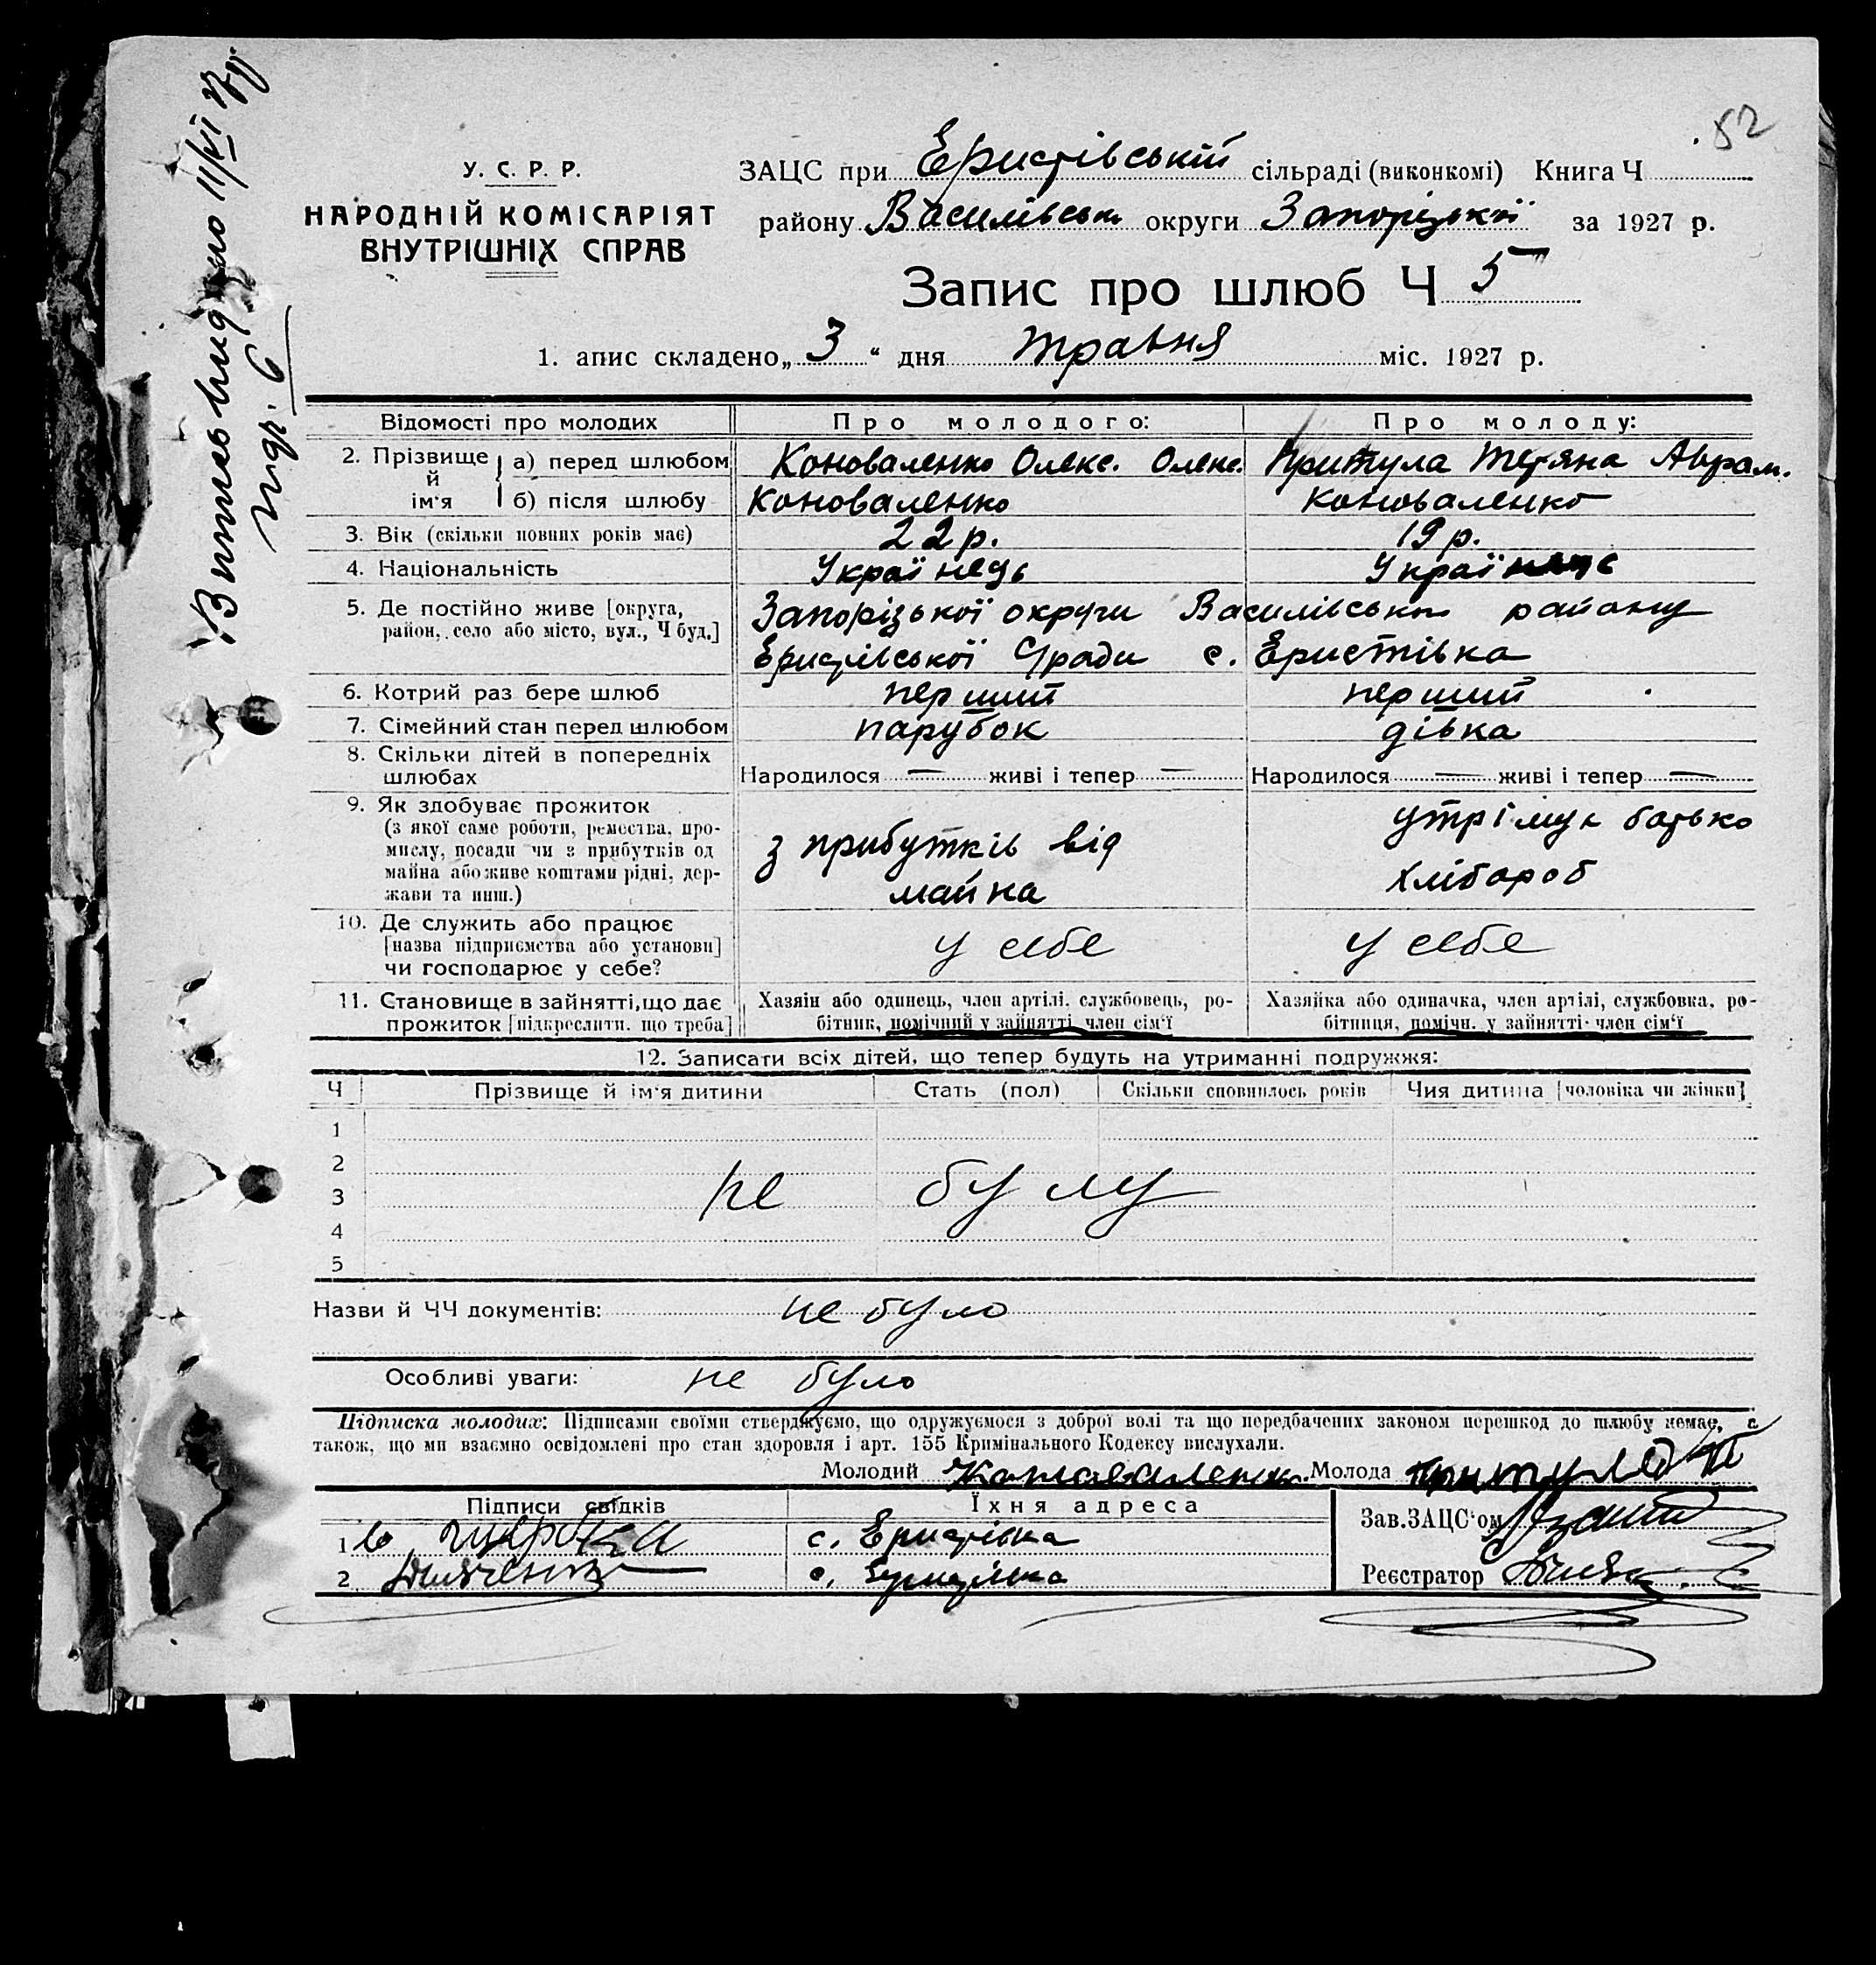 52
У. С. Р. Р.
НАРОДНІЙ КОМІСАРІЯТ
ВНУТРІШНІХ СПРАВ
ЗАЦС при Еристівській сільраді (виконкомі) Книга Ч
району Василівськ округи Запорізької за 1927 р.
Запис про шлюб Ч 5
1. апис складено „ 3 “ дня травня міс. 1927 р.
Відомості про молодих Про молодого: Про молоду:
2. Прізвище й ім‘я а) перед шлюбом Коноваленко Олекс. Олекс. Притула Тетяна Аврам.
б) після шлюбу Коноваленко Коноваленко
3. Вік (скільки повних років має) 22 р. 19 р.
4. Національність Українець Українець
5. Де постійно живе [округа, Запорізької округи Василівськ району
район, село або місто, вул., Ч буд.] Еристівської С/ради с. Еристівка
6. Котрий раз бере шлюб перший перший
7. Сімейний стан перед шлюбом парубок дівка
8. Скільки дітей в попередніх
шлюбах Народилося — живі і тепер — Народилося — живі і тепер —
9. Як здобуває прожиток утрімує батько
(з якої саме роботи, ремества, про-
мислу, посади чи з прибутків од з прибутків від
майна або живе коштами рідні, дер- майна хлібороб
жави та инш.)
10. Де служить або працює
[назва підприємства або установи] у себе у себе
чи господарює у себе?
11. Становище в зайнятті, що дає Хазяін або одинець, член артілі, службовець, ро- Хазяйка або одиначка, член артілі, службовка, ро-
прожиток [підкреслити, що треба] бітник, помічний у зайнятті член сім‘ї бітниця, помічн. у зайнятті член сім‘ї
12. Записати всіх дітей, що тепер будуть на утриманні подружжя:
Ч Прізвище й ім‘я дитини Стать (пол) Скільки сповнилось років Чия дитина [чоловіка чи жінки]
1
2
3 не булу
4
5
Назви й ЧЧ документів: не було
Особливі уваги: не було
Підписка молодих: Підписами своїми стверджуємо, що одружуємося з доброї волі та що передбачених законом перешкод до шлюбу немає, а
також, що ми взаємно освідомлені про стан здоровля і арт. 155 Кримінального Кодексу вислухали.
Молодий Коноваленко Молода Притула
Підписи свідків Їхня адреса
1 с. Еристівка Зав.ЗАЦС‘ом
2 с. Еристівка Реєстратор